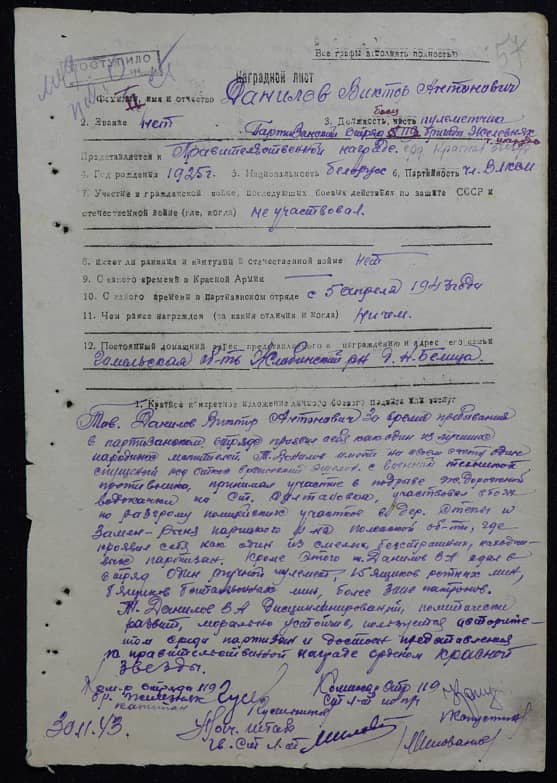 57
Все графы заполнять полностью
ПОСТУПИЛО
Наградной лист
1. Фамилия, имя и отчество Данилов Виктор Антонович
2. Звание нет 3. Должность, часть боец пулеметчик
Партизанский отряд 119 бригады Железняк
Представляется к Правительственной награде орд Красная звезда
4. Год рождения 1925г. 5. Национальность белорус 6. Партийность чл. ВЛКСМ
7. Участие в гражданской войне, последующих боевых действиях по защите СССР и
отечественной войне (где, когда) не участвовал.
8. Имеет ли ранения и контузии в отечественной войне нет
9. С какого времени в Красной Армии
10. С какого времени в партизанском отряде с 5 апреля 1943 года
11. Чем ранее награжден (за какие отличия и когда) Ничем.
12. Постоянный домашний адрес представляемого к награждению и адрес его семьи
Гомельская об-ть Жлобинский р-н д. Н. Белица.
1. Краткое конкретное изложение личного боевого подвига или заслуг
Тов. Данилов Виктор Антонович за время пребывания
в партизанском отряде проявил себя как один из лучших
народных мстителей. Т. Данилов имеет на своем счету один
спущенный под откос вражеский эшелон с военной техникой
противника, принимал участие в подрыве ж. дорожной
водокачки на ст. участвовал в бою
по разгрому полицейских участков в дер.
проявил себя как один из смелых, бесстрашных,
партизан. Кроме этого т. Данилов В А сдал в
отряд один ручной пулемет, 15 ящиков ротных мин,
6 ящиков батальонных мин, более патронов.
Т. Данилов В А Дисциплинирован, политически
развит, морально устойчив, пользуется авторите-
том среди партизан и достоин представления
к правительственной награде орденом Красной
Звезды.
Ком-р отряда 119 Комиссар отр 119
бр. Железняк ст л-т
капитан
30.11.43. Нач. штаба
Гв. ст л-т